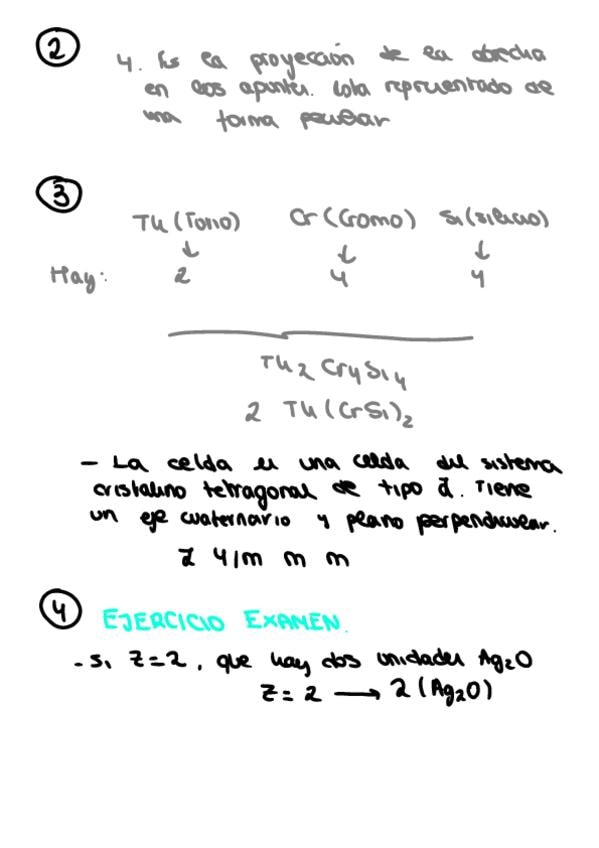 2
4. Es la proyección de la derecha
en los apuntes. Esta representado de
una forma peculiar
3
Th (Torio) Cr (Cromo) Si (silicio)
↓ ↓ ↓
Hay: 2 4 4
Th2 Cr4 Si4
2 Th (CrSi)2
- La celda es una celda del sistema
cristalino tetragonal de tipo I. Tiene
un eje cuaternario y plano perpendicular.
I 4/m m m
4 EJERCICIO EXAMEN.
- Si Z=2, que hay dos unidades Ag2O
Z = 2 → 2 (Ag2O)